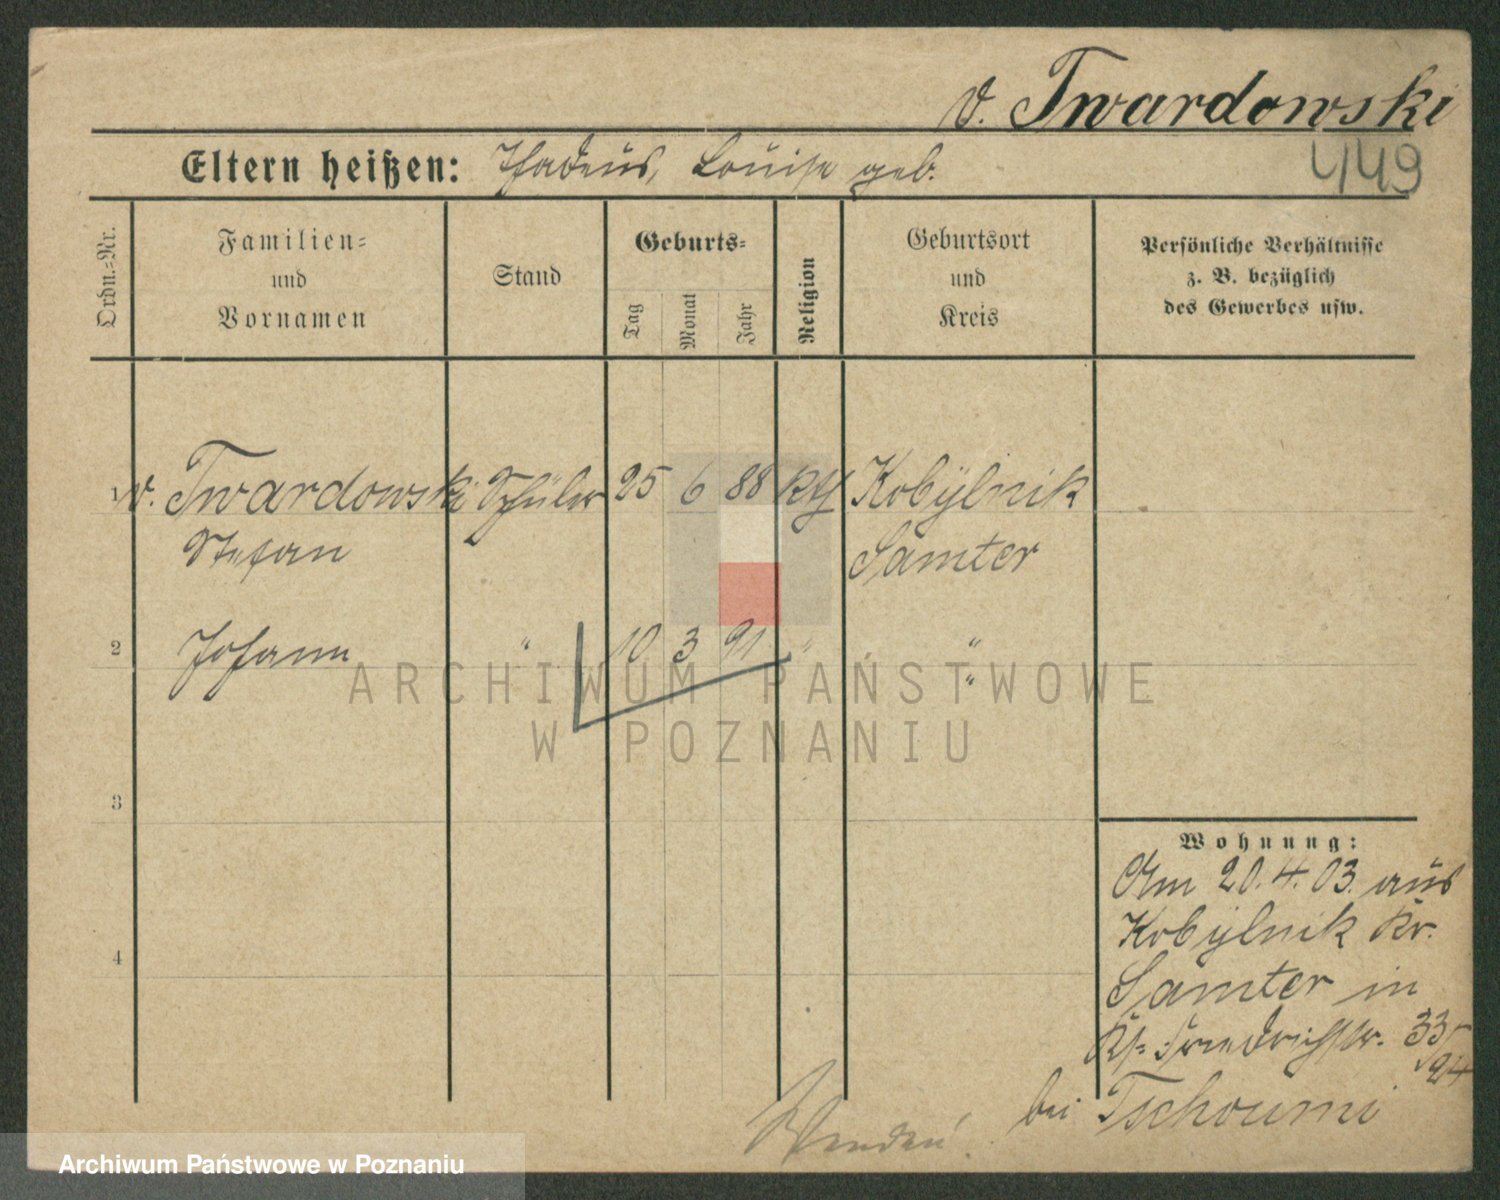 v. Twardowski
449
Eltern heißen: Thadeus, Louise geb.
Ordn.=Nr.
Familien=
und
Vornamen
Stand
Geburts=
Tag Monat Jahr
Religion
Geburtsort
und
Kreis
Persönliche Verhältnisse
z. B. bezüglich
des Gewerbes usw.
1 v. Twardowski Schüler 25 6 88 kth Kobylnik
Stefan Samter
2 Johann " 10 3 91 " "
"
3
4
Wohnung:
Am 20.4.03. aus
Kobylnik Kr.
Samter in
Friedrichstr. 33
24
bei Tschoumi
Wenden!
ARCHIWUM PAŃSTWOWE
W POZNANIU
Archiwum Państwowe w Poznaniu